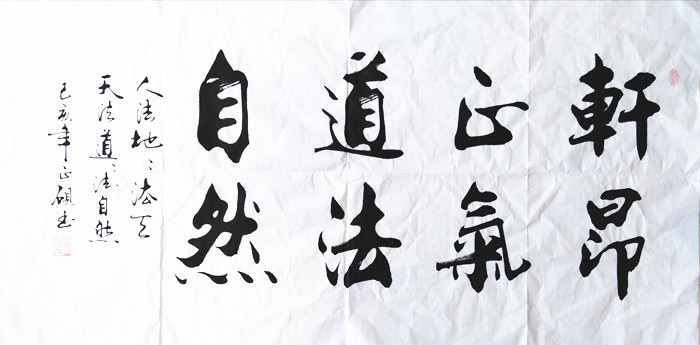 軒昂
正氣
道法
自然
人法地々法天
天法道々法自然
己亥年正硯书